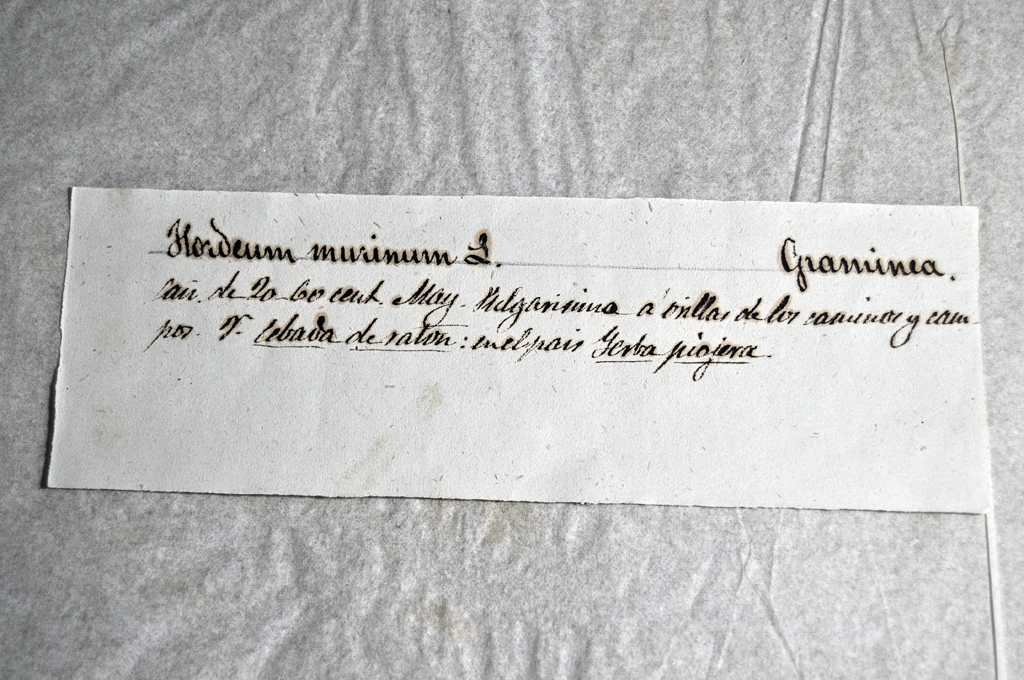 Hordeum murinum L. Graminea.
Cañ. de 20-60 cent. May. Vulgarisima a orillas de los caminos y cam-
pos. V. Cebada de raton: en el pais Yerba piojera.